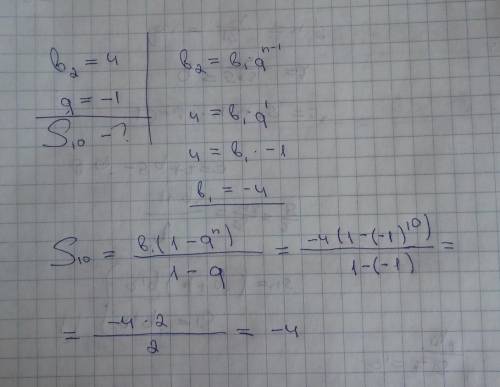 b₂ = 4
q = -1
S₁₀ - ?
b₂ = b₁·qⁿ⁻¹
4 = b₁·q¹
4 = b₁ · -1
b₁ = -4
S₁₀ = b₁(1-qⁿ) / 1-q = -4(1-(-1)¹⁰) / 1-(-1) =
= -4·2 / 2 = -4